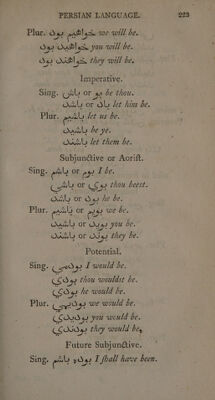 PERSIAN LANGUAGE. 223
Plur. خواهیم بود we will be.
خواهید بود you will be.
خواهند بود they will be.
Imperative.
Sing. باش or بو be thou.
باشد or باد let him be.
Plur. باشیم let us be.
باشید be ye.
باشند let them be.
Subjunctive or Aorist.
Sing. باشم or بوم I be.
باشی or بوي thou beest.
باشد or بود he be.
Plur. باشیم or بویم we be.
باشید or بوید you be.
باشند or بوند they be.
Potential.
Sing. بودمي I would be.
بودي thou wouldst be.
بودي he would be.
Plur. بودیمي we would be.
بودیدي you would be.
بودندي they would be,
Future Subjunctive.
Sing. بوده باشم I shall have been.